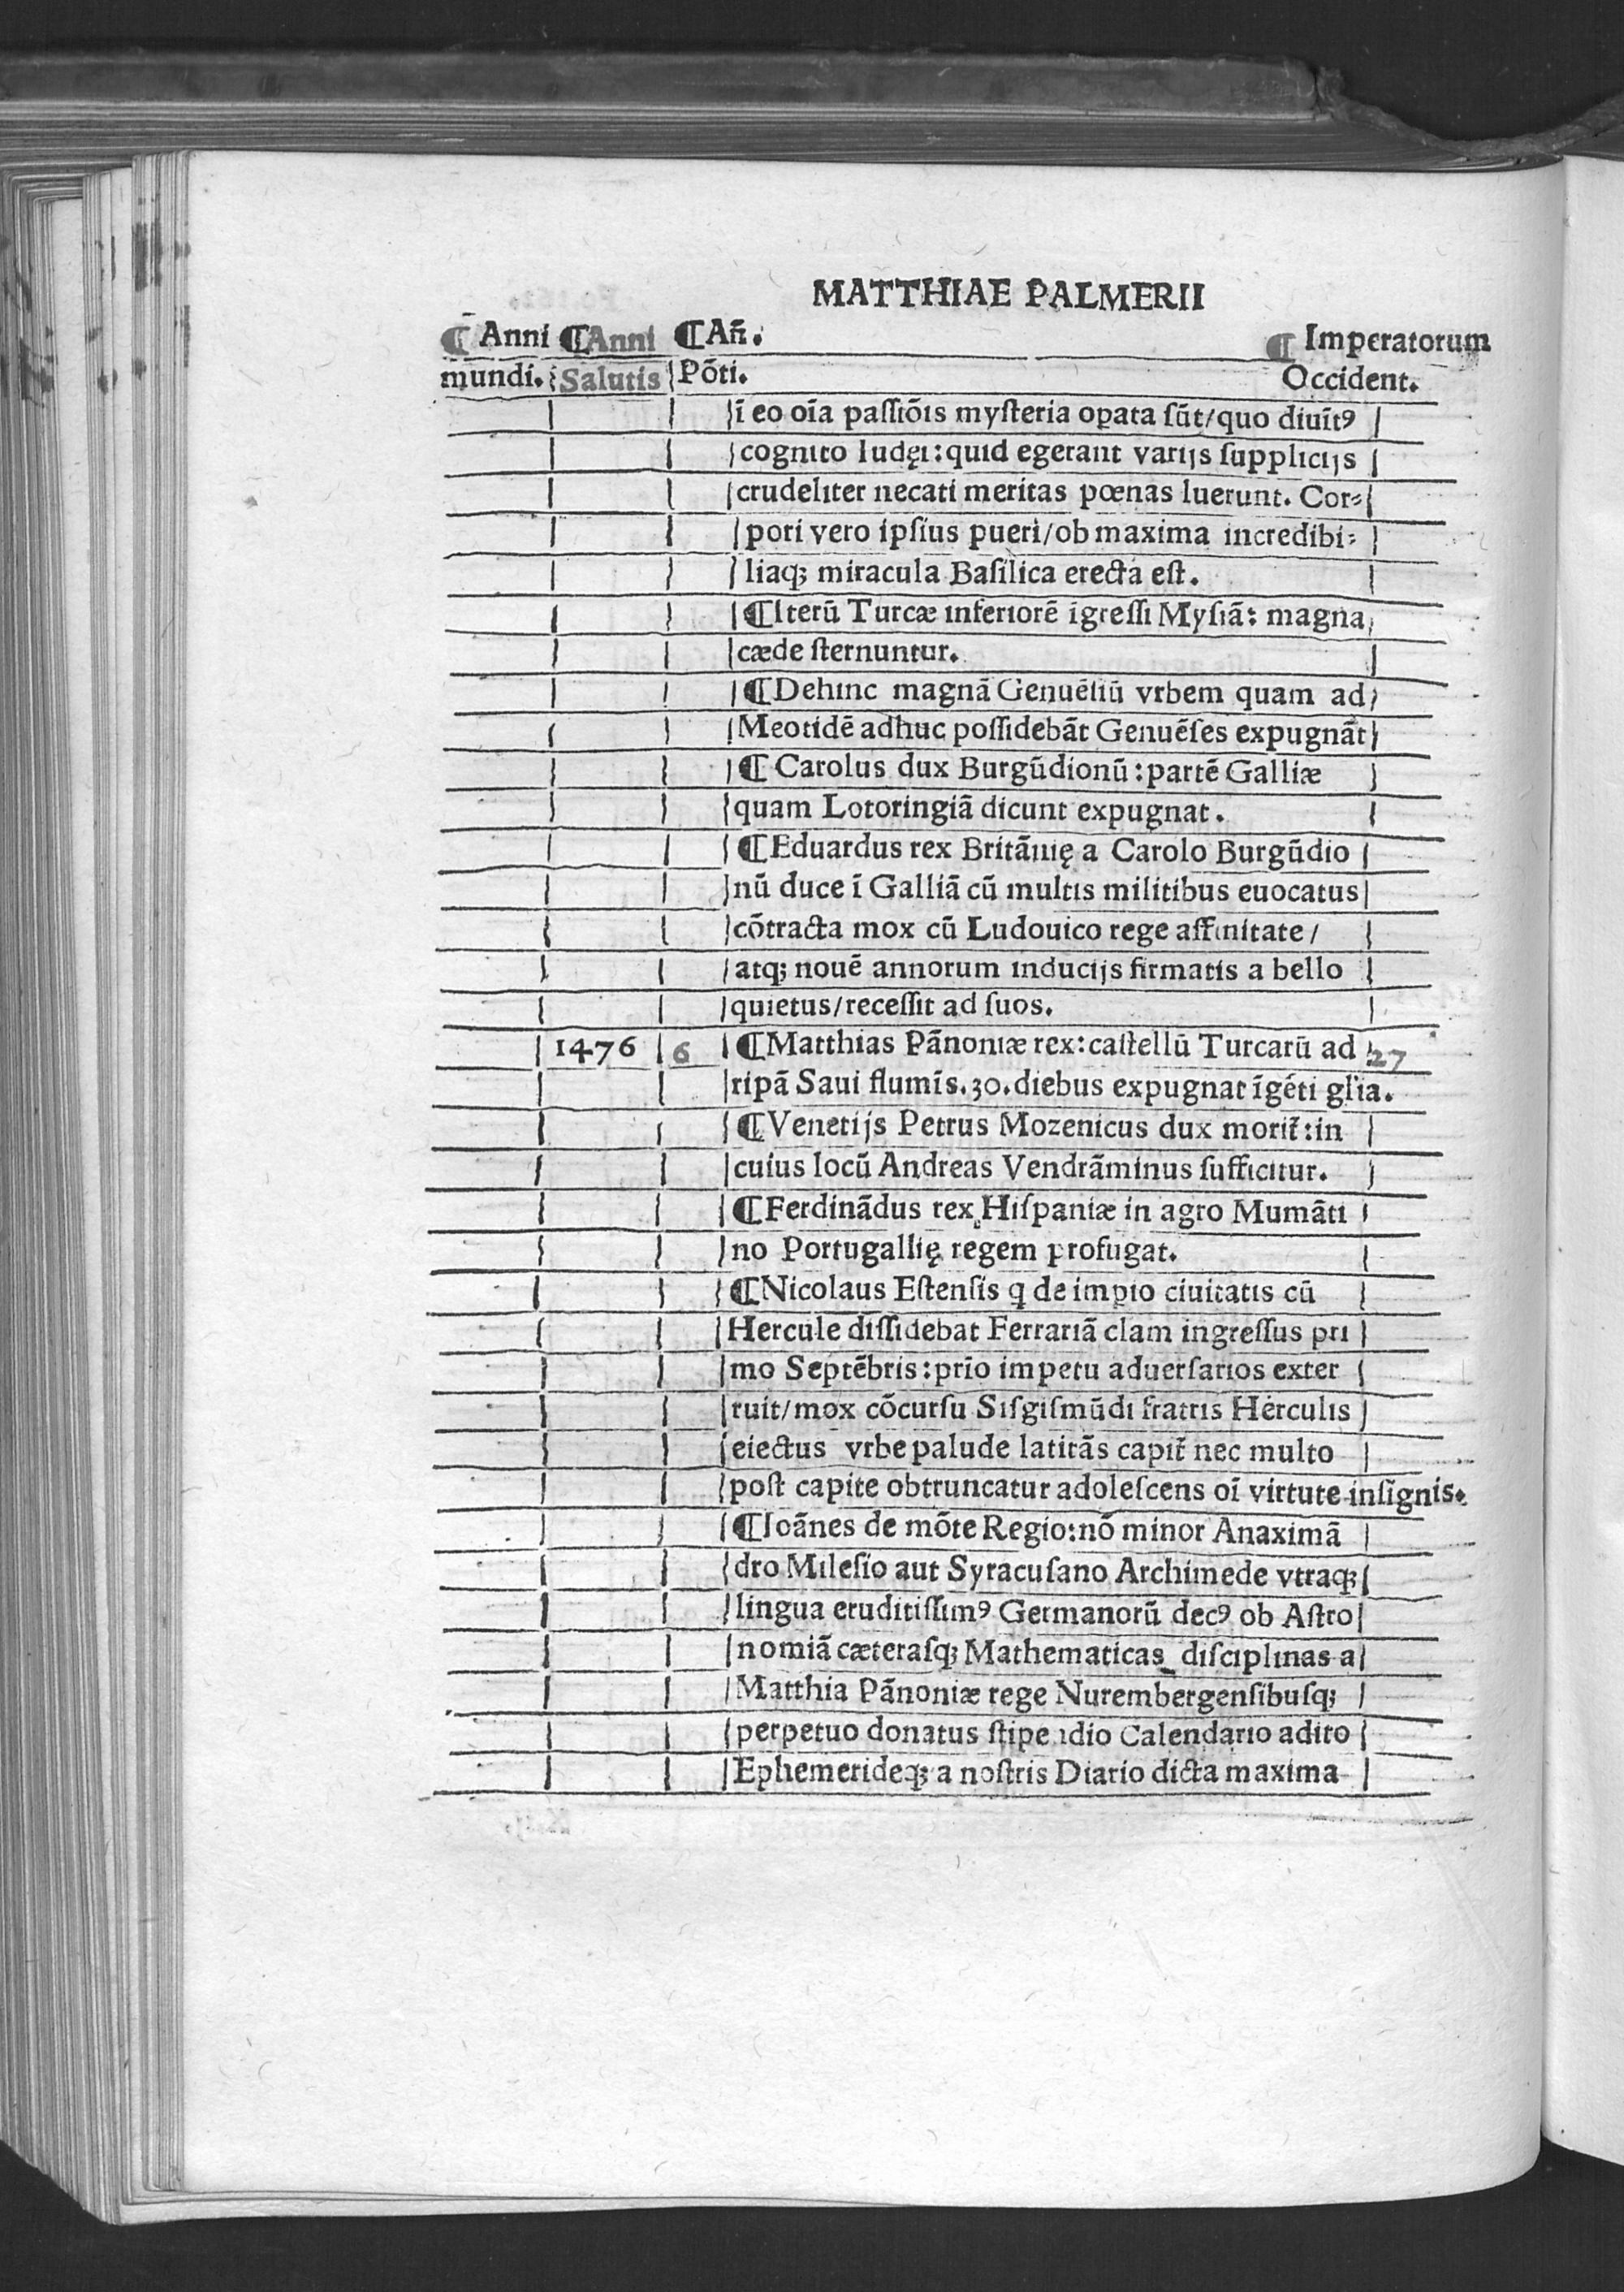 MATTHIAE PALMERII
¶ Anni ¶Anni ¶Añ. ¶ Imperatorum
mundi. Salutis Põti. Occident.
ĩ eo oĩa passiõis mysteria oꝑata sũt/quo diuĩtꝰ
cognito Iudęi:quid egerant varijs supplicijs
crudeliter necati meritas pœnas luerunt. Cor⸗
pori vero ipsius pueri/ob maxima incredibi⸗
liaq; miracula Basilica erecta est.
¶Iterũ Turcæ inferiorẽ ĩgressi Mysiã: magna
cæde sternuntur.
¶Dehinc magnã Genuẽsiũ vrbem quam ad
Meotidẽ adhuc possidebãt Genuẽses expugnãt
¶ Carolus dux Burgũdionũ:partẽ Galliæ
quam Lotoringiã dicunt expugnat.
¶Eduardus rex Britãnię a Carolo Burgũdio
nũ duce ĩ Galliã cũ multis militibus euocatus
cõtracta mox cũ Ludouico rege affinitate/
atq; nouẽ annorum inducijs firmatis a bello
quietus/recessit ad suos.
1476 6 ¶Matthias Pãnoniæ rex:castellũ Turcarũ ad 27
ripã Saui flumĩs.30.diebus expugnat ĩgẽti glia.
¶Venetijs Petrus Mozenicus dux morit̃:in
cuius locũ Andreas Vendrãminus sufficitur.
¶Ferdinãdus rex Hispaniæ in agro Mumãti
no Portugallię regem profugat.
¶Nicolaus Estensis q de impio ciuitatis cũ
Hercule dissidebat Ferrariã clam ingressus pri
mo Septẽbris:prĩo impetu aduersarios exter
ruit/mox cõcursu Sisgismũdi fratris Herculis
eiectus vrbe palude latitãs capit̃ nec multo
post capite obtruncatur adolescens oĩ virtute insignis.
¶Ioãnes de mõte Regio:nõ minor Anaximã
dro Milesio aut Syracusano Archimede vtraq;
lingua eruditissimꝰ Germanorũ decꝰ ob Astro
nomiã cæterasq; Mathematicas disciplinas a
Matthia Pãnoniæ rege Nurembergensibusq;
perpetuo donatus stipendio Calendario adito
Ephemerideq; a nostris Diario dicta maxima